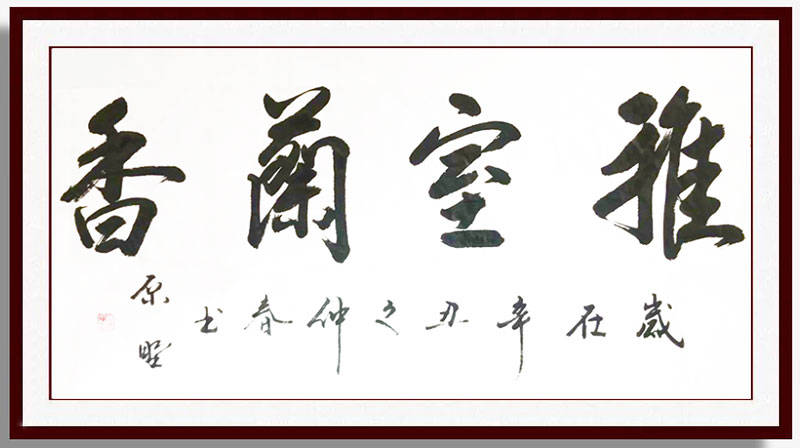 雅室蘭香
歲在辛丑之仲春书
原野